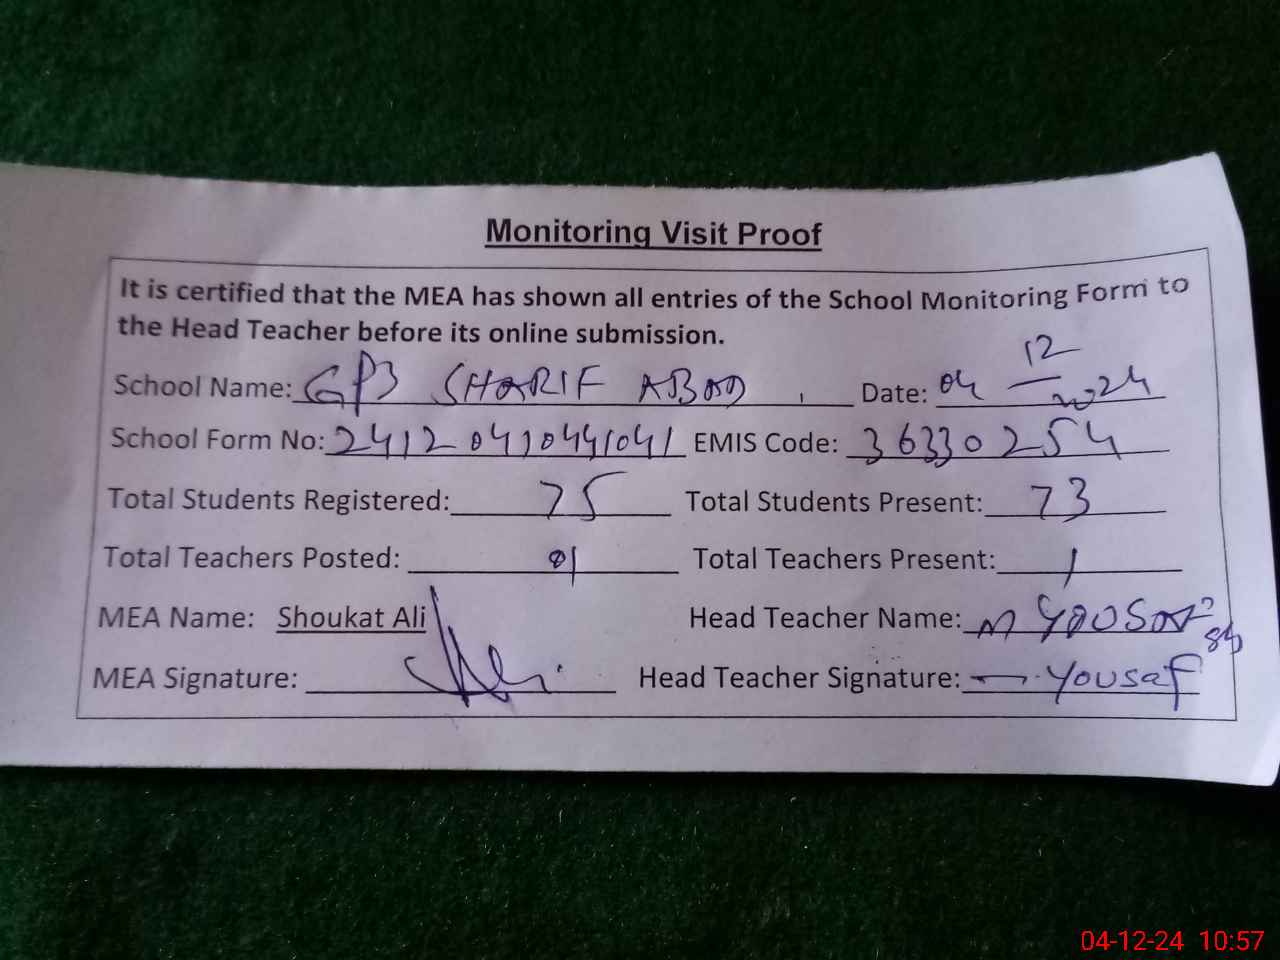 Monitoring Visit Proof
It is certified that the MEA has shown all entries of the School Monitoring Form to
the Head Teacher before its online submission.
School Name: GPS SHARIF ABAD Date: 04/12/2024
School Form No: 24120410441041 EMIS Code: 36330254
Total Students Registered: 75 Total Students Present: 73
Total Teachers Posted: 01 Total Teachers Present: 1
MEA Name: Shoukat Ali Head Teacher Name: M YOUSAF
MEA Signature: Head Teacher Signature: Yousaf
04-12-24 10:57